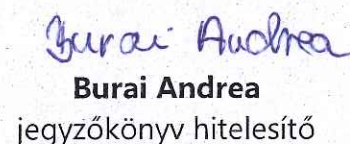 Burai Andrea
Burai Andrea
jegyzőkönyv hitelesítő